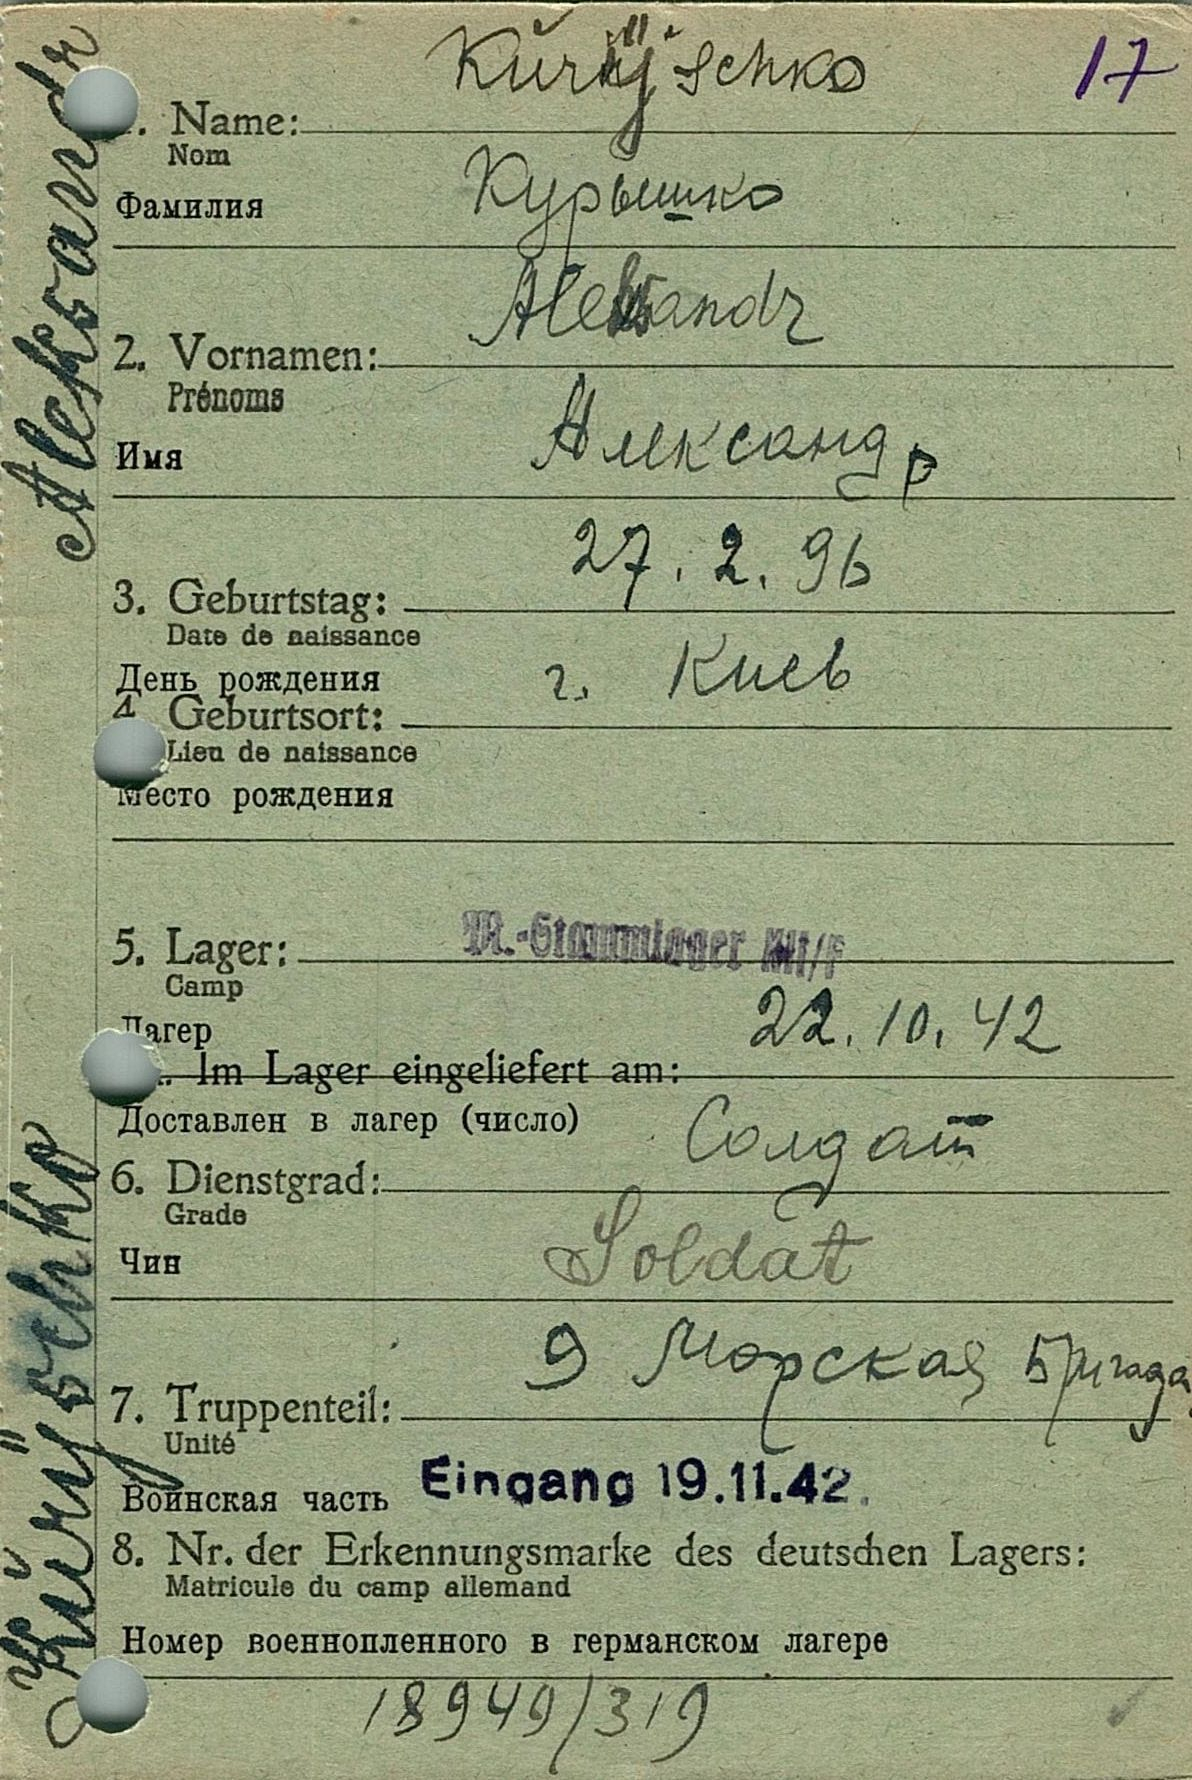 Kŭrÿschko
17
1. Name:
Nom
Курышко
Фамилия
Aleksandr
2. Vornamen:
Prénoms
Александр
Имя
27. 2. 96
3. Geburtstag:
Date de naissance
День рождения
г. Киев
4 Geburtsort:
Lieu de naissance
Место рождения
5. Lager:
M.-Stammlager XII/F
Camp
Лагер
22. 10. 42
Im Lager eingeliefert am:
Доставлен в лагер (число)
Солдат
6. Dienstgrad:
Grade
Soldat
Чин
9 Морская Бригада
7. Truppenteil:
Unité
Воинская часть
Eingang 19.11.42.
8. Nr. der Erkennungsmarke des deutschen Lagers:
Matricule du camp allemand
Номер военнопленного в германском лагере
18949/319
Kŭrÿschko Aleksandr